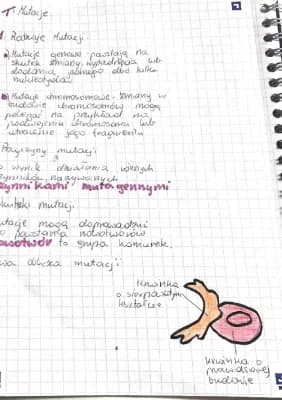 T: Mutacje.
1. Rodzaje mutacji.
a) Mutacje genowe - powstają na
skutek zmiany, wypadnięcia lub
dodania jednego albo kilku
nukleotydów
b) Mutacje chromosomowe - zmiany w
budowie chromosomów mogą
polegać na przykład na
podwojeniu chromosomu lub
utracie jego fragmentu
Przyczyny mutacji
wynik działania różnych
czynników nazywanych
czynnikami mutagennymi
skutki mutacji
mutacje mogą doprowadzić
do powstania nowotworów
nowotwór to grupa komórek.
mutacji
krwinka
o sierpowatym
kształcie
krwinka o
prawidłowej
budowie